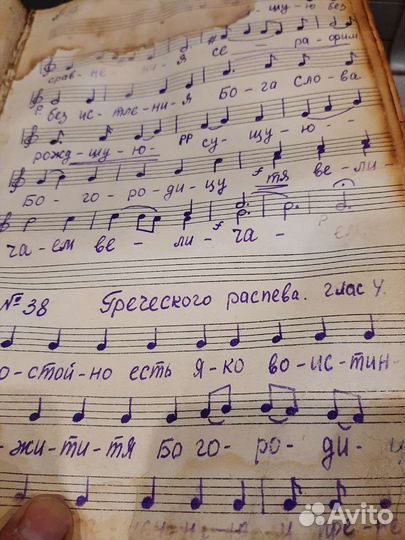 шу-ю без
срав-не-ни-я се-ра-фим
без ис-тле-ни-я Бо-га сло-ва
рожд-шу-ю- pp су-щу-ю-
Бо-го-ро-ди-цу f тя ве-ли-
ча-ем ве-ли-f ча- p
№38 Греческого распева. глас 4.
о-стой-но есть я-ко во-ис-тин-
-жи-ти-тя Бо го-ро-ди-
Avito